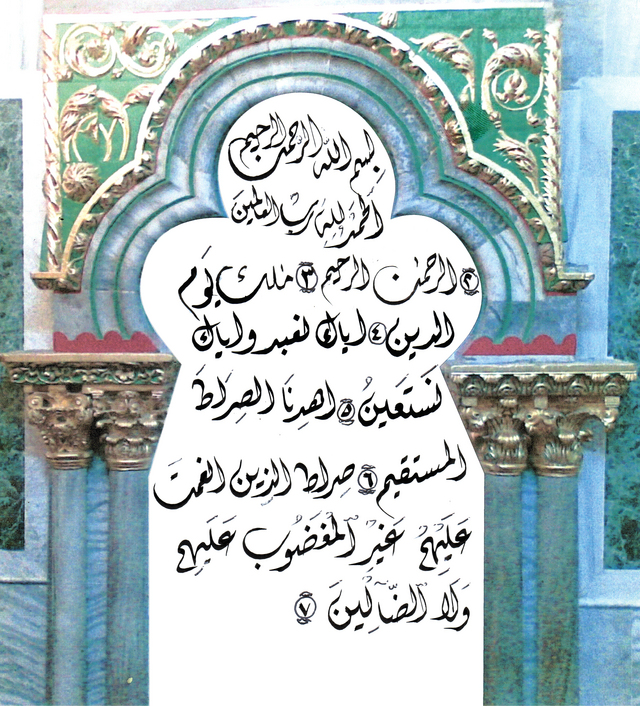 بسم الله الرحمن الرحيم
الحمد لله رب العالمين
﴿٢﴾ الرحمٰن الرحيم ﴿٣﴾ ملك يَوم
الدين ﴿٤﴾ اياك نعبد واياك
نَستَعَينُ ﴿٥﴾ اهدِنَا الصِراطَ
المستقيم ﴿٦﴾ صِراط الذين انعمتَ
عَلَيهِمُ غَيرِ المَغضُوبِ عَلَيهِم
وَلَا الضَّالِينَ ﴿٧﴾